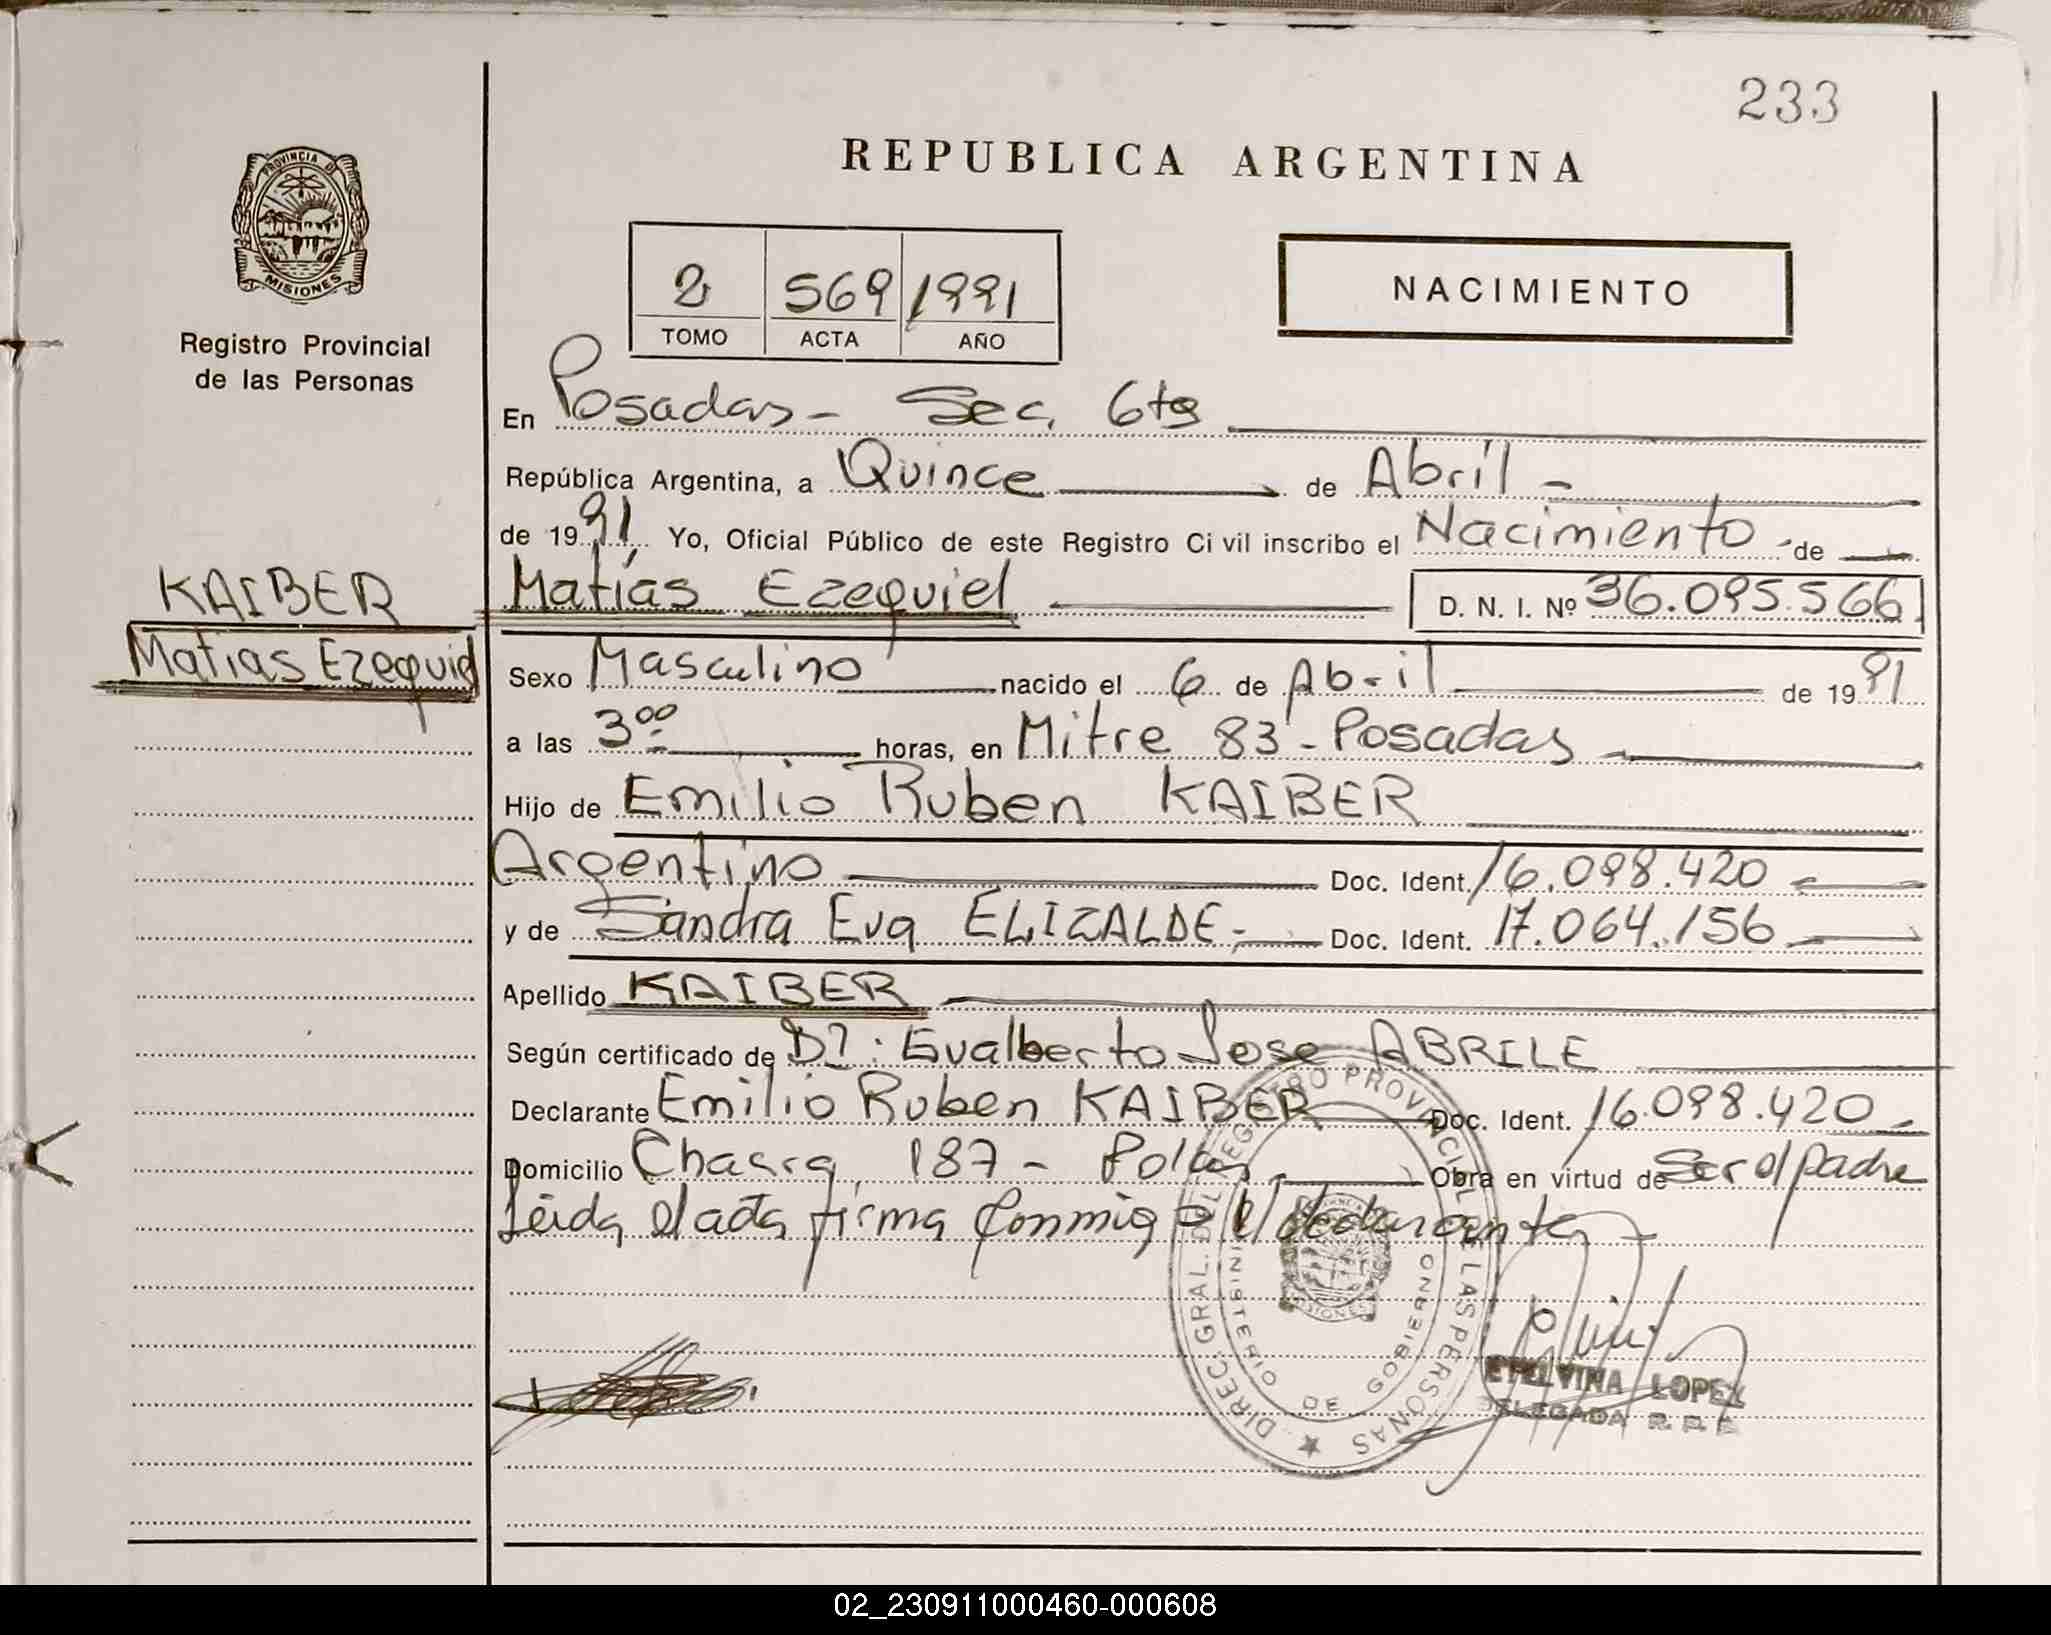 233
REPUBLICA ARGENTINA
PROVINCIA DE
MISIONES
Registro Provincial
de las Personas
2 569 1991
TOMO ACTA AÑO
NACIMIENTO
En Posadas - Sec. 6ta
República Argentina, a Quince de Abril -
de 1991, Yo, Oficial Público de este Registro Civil inscribo el Nacimiento - de
KAIBER
Matías Ezequiel
Matías Ezequiel D. N. I. Nº 36.095.566
Sexo Masculino nacido el 6 de Abril de 1991
a las 3.00 horas, en Mitre 83 - Posadas
Hijo de Emilio Ruben KAIBER
Argentino Doc. Ident. 16.098.420
y de Sandra Eva ELIZALDE - Doc. Ident. 17.064.156
Apellido KAIBER
Según certificado de Evalberto Jose ABRILE
Declarante Emilio Ruben KAIBER Doc. Ident. 16.098.420 -
Domicilio Chacra 187 - Obra en virtud de Ser el padre
Leida el acta firma conmigo el declarante
DIREC. GRAL. DEL REGISTRO PROVINCIAL DE LAS PERSONAS
MINISTERIO DE GOBIERNO
MISIONES
ETELVINA LOPEZ
DELEGADA R. P. P.
02_230911000460-000608